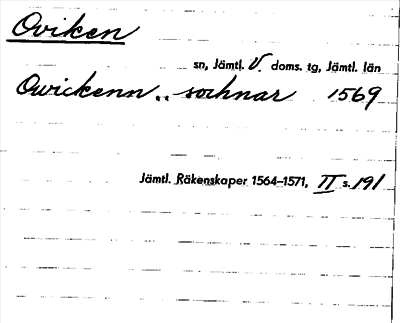 Oviken
sn, Jämtl. V. doms. tg, Jämtl. län
Owickenn .. sochnar 1569
Jämtl. Räkenskaper 1564–1571, II s. 191